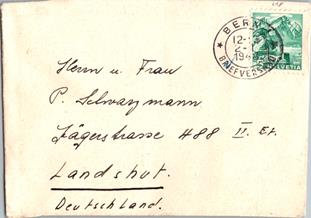 BERN
12-
2-
19
BRIEFVERSAND
HELVETIA
Herrn u. Frau
P. Schwarzmann
Jägerstrasse 488 II. Et.
Landshut.
Deutschland.